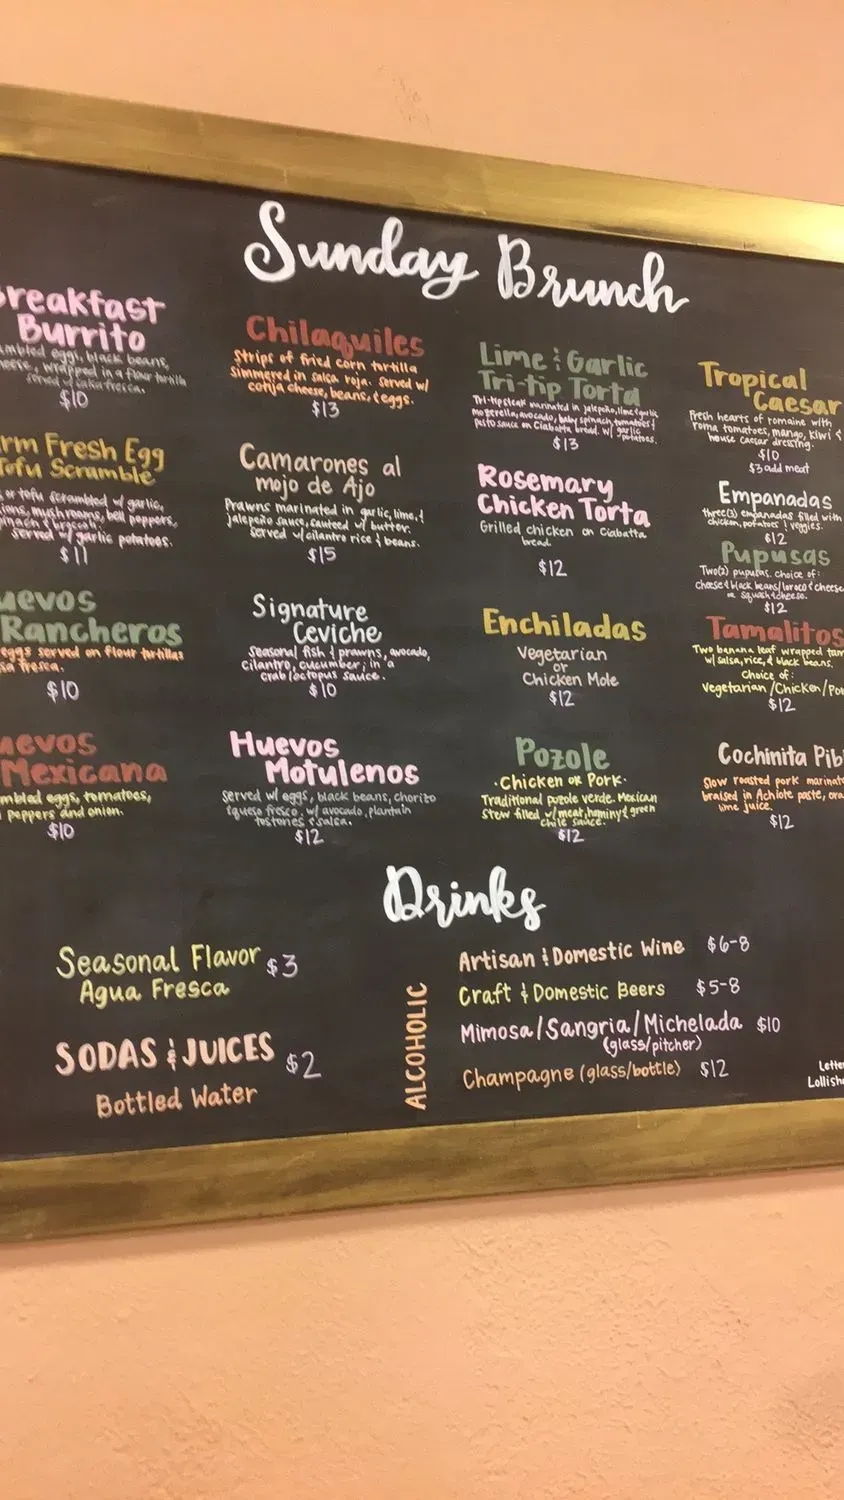 Sunday Brunch
reakfast
Burrito
mbled eggs, black beans,
eese, wrapped in a flour tortilla
served w/ salsa fresca.
$10
rm Fresh Egg
Tofu Scramble
or tofu scrambled w/ garlic,
ions, mushrooms, bell peppers,
pinach & broccoli.
served w/ garlic potatoes.
$11
uevos
Rancheros
eggs served on flour tortillas
sa fresca.
$10
uevos
Mexicana
mbled eggs, tomatoes,
peppers and onion.
$10
Chilaquiles
Strips of fried corn tortilla
simmered in salsa roja. Served w/
cotija cheese, beans, & eggs.
$13
Camarones al
mojo de Ajo
Prawns marinated in garlic, lime, &
jalepeño sauce, sauteed w/ butter.
Served w/ cilantro rice & beans.
$15
Signature
Ceviche
Seasonal fish & prawns, avocado,
cilantro, cucumber, in a
crab/octopus sauce.
$10
Huevos
Motulenos
Served w/ eggs, black beans, chorizo
& queso fresco. w/ avocado, plantain
tostones & salsa.
$12
Lime & Garlic
Tri-tip Torta
Tri-tip steak marinated in jalepeño, lime & garlic
mozzerella, avocado, baby spinach, tomatoes &
pesto sauce on Ciabatta bread. w/ garlic
potatoes.
$13
Rosemary
Chicken Torta
Grilled chicken on Ciabatta
bread.
$12
Enchiladas
Vegetarian
or
Chicken Mole
$12
Pozole
·Chicken or Pork·
Traditional pozole verde. Mexican
Stew filled w/ meat, hominy & green
chile sauce.
$12
Tropical
Caesar
Fresh hearts of romaine with
roma tomatoes, mango, kiwi &
house caesar dressing.
$10
$3 add meat
Empanadas
three(3) empanadas filled with
chicken, potatoes & veggies.
$12
Pupusas
Two(2) pupusas. choice of:
cheese & black beans/loroco & cheese
or squash & cheese.
$12
Tamalitos
Two banana leaf wrapped tam
w/ salsa, rice, & black beans.
Choice of:
Vegetarian/Chicken/Por
$12
Cochinita Pib
Slow roasted pork marinat
braised in Achiote paste, ora
lime juice.
$12
Drinks
Seasonal Flavor $3
Agua Fresca
SODAS & JUICES $2
Bottled Water
ALCOHOLIC
Artisan & Domestic Wine $6-8
Craft & Domestic Beers $5-8
Mimosa/Sangria/Michelada $10
(glass/pitcher)
Champagne (glass/bottle) $12
Lette
Lollish